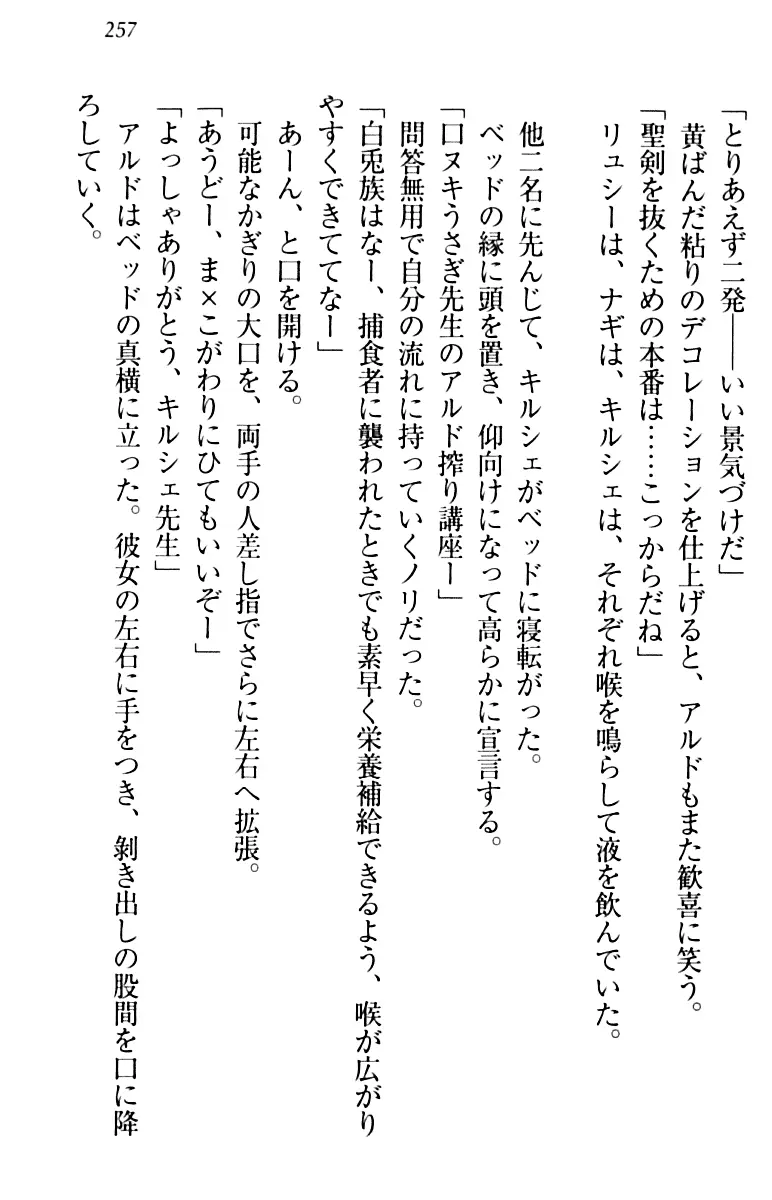 257
「とりあえず二発――いい景気づけだ」
黄ばんだ粘りのデコレーションを仕上げると、アルドもまた歓喜に笑う。
「聖剣を抜くための本番は……こっからだね」
リュシーは、ナギは、キルシェは、それぞれ喉を鳴らして液を飲んでいた。
他二名に先んじて、キルシェがベッドに寝転がった。
ベッドの縁に頭を置き、仰向けになって高らかに宣言する。
「口ヌキうさぎ先生のアルド搾り講座ー」
問答無用で自分の流れに持っていくノリだった。
「白兎族はなー、捕食者に襲われたときでも素早く栄養補給できるよう、喉が広がり
やすくできててなー」
あーん、と口を開ける。
可能なかぎりの大口を、両手の人差し指でさらに左右へ拡張。
「あうどー、ま×こがわりにひてもいいぞー」
「よっしゃありがとう、キルシェ先生」
アルドはベッドの真横に立った。彼女の左右に手をつき、剝き出しの股間を口に降
ろしていく。